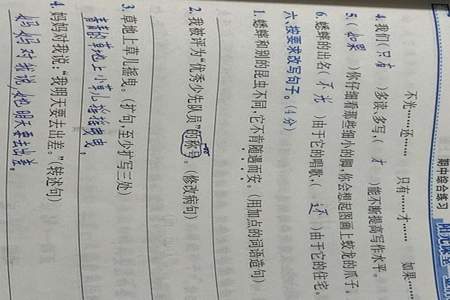 期中综合练习
不光……还……　只有……才……　如果……
4. 我们(只有)多读、多写,(才)能不断提高写作水平。
5. (如果)你仔细看那些细小的脚,你会想起图画上蛟龙的爪子。
6. 蟋蟀的出名(不光)由于它的唱歌,(还)由于它的住宅
六、按要求改写句子。(4分)
1. 蟋蟀和别的昆虫不同,它不肯随遇而安。(用加点的词语造句)
2. 我被评为“优秀少先队员”的称号。(修改病句)
3. 草地上草儿摇曳。(扩句,至少扩写三处)
青青的草地上小草儿轻轻摇曳
4. 妈妈对我说:“我明天要去出差。”(转述句)
妈妈对我说,她明天要去出差。